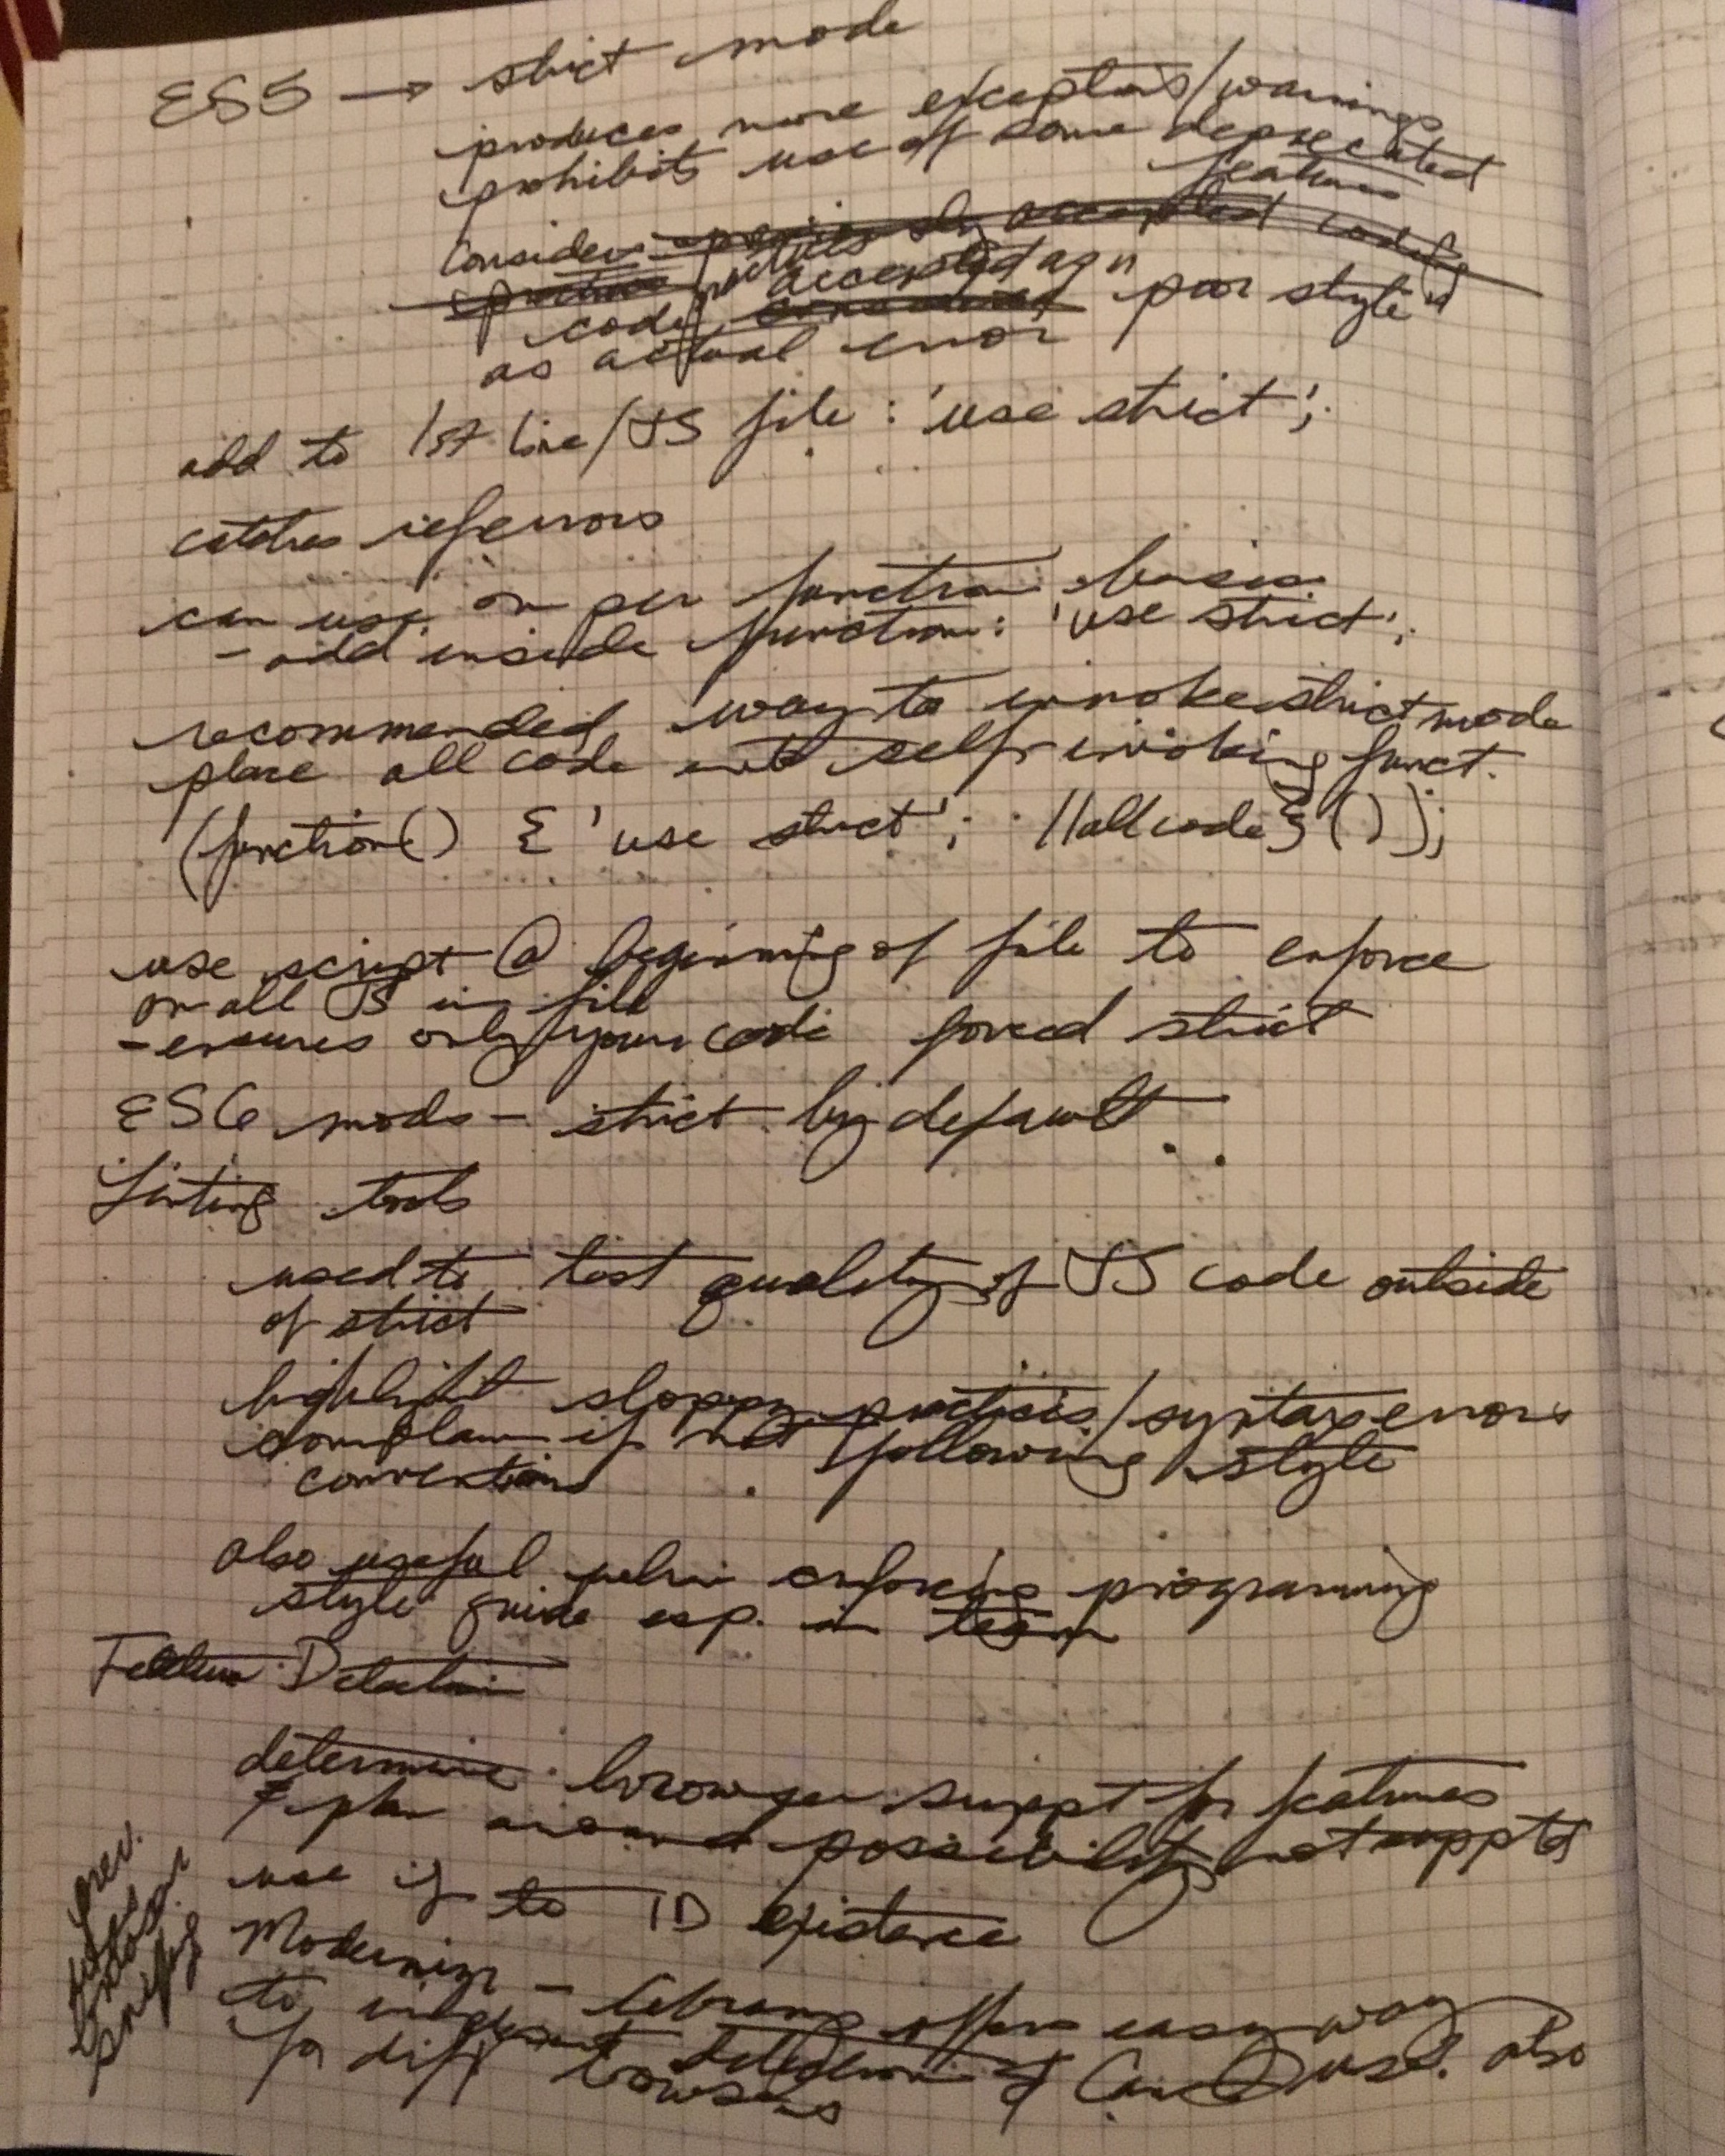 ES5 → strict mode
produces more exceptions/warnings
prohibits use of some deprecated
features
considers previously accepted coding
practices
accepted as "
code poor style"
as actual error
add to 1st line/JS file : 'use strict';
catches ref errors
can use on per function basis
- add inside function: 'use strict';
recommended way to invoke strict mode
place all code self invoking funct.
(function() { 'use strict'; //all code}());
use script @ beginning of file to enforce
on all JS in file
- ensures only your code forced strict
ES6 mods - strict by default
Linting tools
used to test quality of JS code outside
of strict
highlight sloppy practices/syntax errors
complain if not following style
conventions
also useful when enforcing programming
style guide esp. in team
Feature Detection
determine browser suppt for features
& plan around possibility not suppted
use if to ID existence
Modernizr - library offers easy way
to implement detection & Can I use? also
for diff browsers
prev.
browser
sniffing